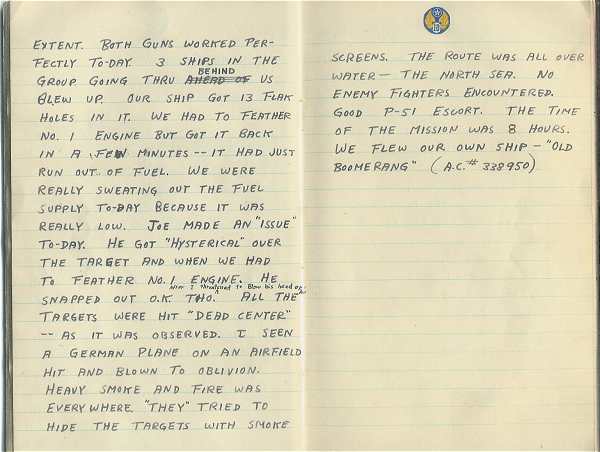 EXTENT. BOTH GUNS WORKED PER-
FECTLY TO-DAY. 3 SHIPS IN THE
BEHIND
GROUP GOING THRU AHEAD OF US
BLEW UP. OUR SHIP GOT 13 FLAK
HOLES IN IT. WE HAD TO FEATHER
NO. 1 ENGINE BUT GOT IT BACK
IN A FEW MINUTES -- IT HAD JUST
RUN OUT OF FUEL. WE WERE
REALLY SWEATING OUT THE FUEL
SUPPLY TO-DAY BECAUSE IT WAS
REALLY LOW. JOE MADE AN "ISSUE"
TO-DAY. HE GOT "HYSTERICAL" OVER
THE TARGET AND WHEN WE HAD
TO FEATHER NO. 1 ENGINE. HE
after I threatened to Blow his head off
SNAPPED OUT O.K. THO. ALL THE
TARGETS WERE HIT "DEAD CENTER"
-- AS IT WAS OBSERVED. I SEEN
A GERMAN PLANE ON AN AIRFIELD
HIT AND BLOWN TO OBLIVION.
HEAVY SMOKE AND FIRE WAS
EVERYWHERE. "THEY" TRIED TO
HIDE THE TARGETS WITH SMOKE
SCREENS. THE ROUTE WAS ALL OVER
WATER — THE NORTH SEA. NO
ENEMY FIGHTERS ENCOUNTERED.
GOOD P-51 ESCORT. THE TIME
OF THE MISSION WAS 8 HOURS.
WE FLEW OUR OWN SHIP — "OLD
BOOMERANG" (A.C.# 338950)